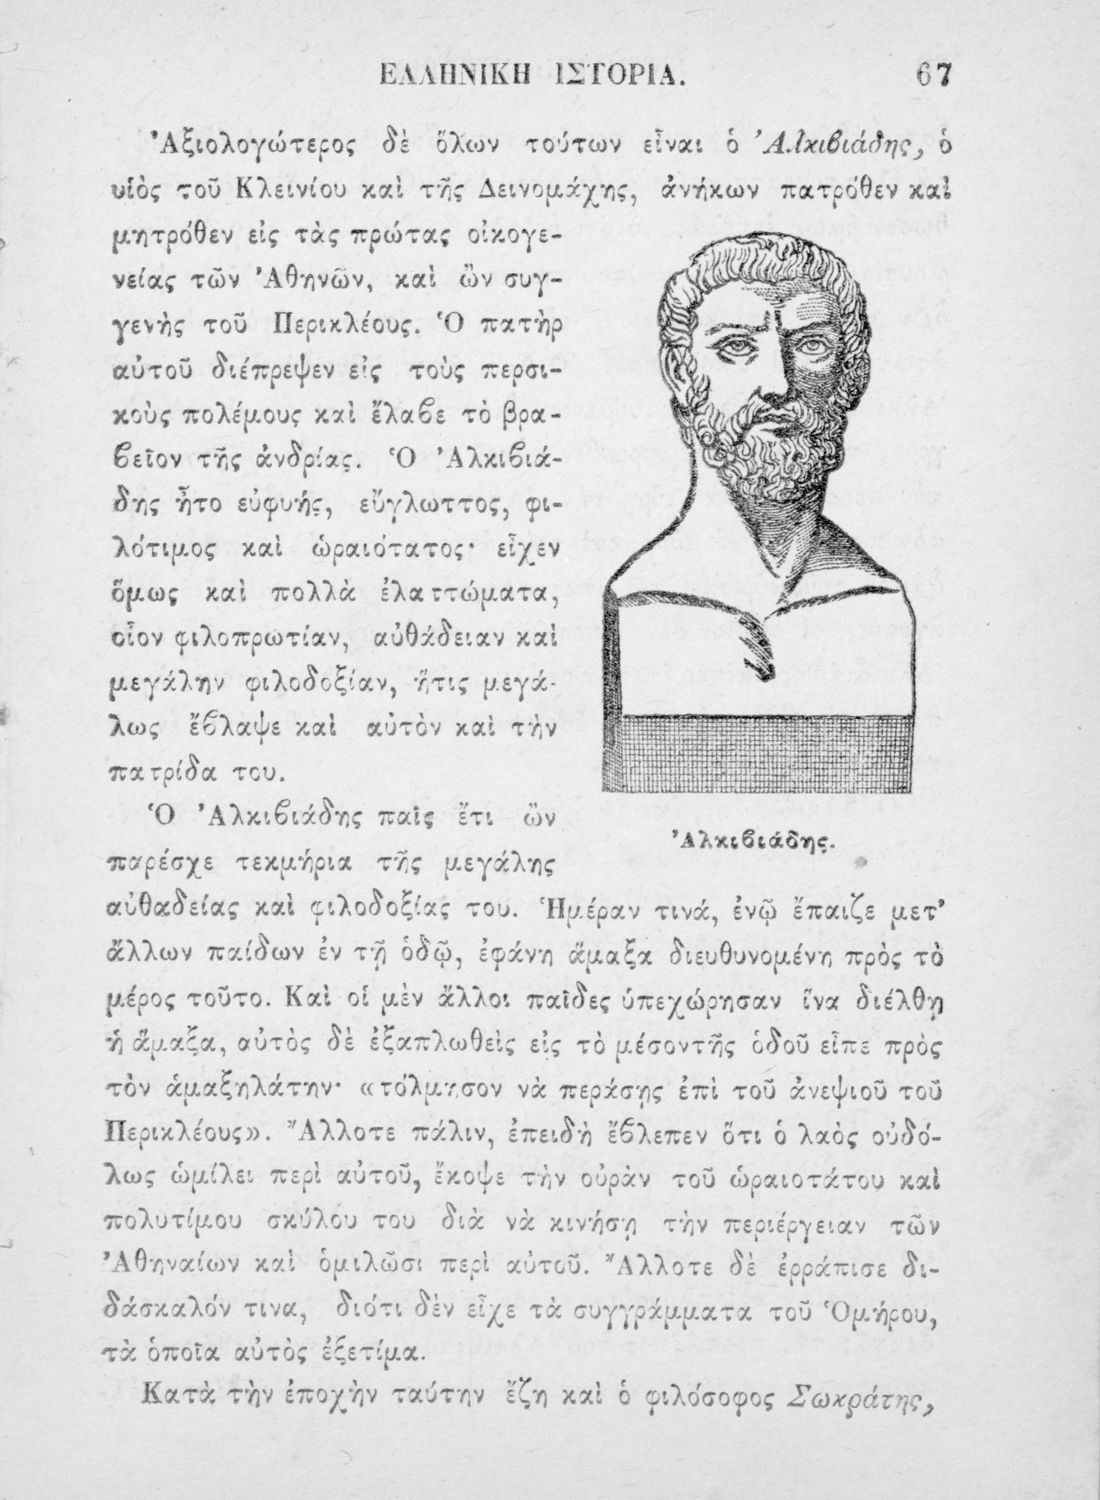 ΕΛΛΗΝΙΚΗ ΙΣΤΟΡΙΑ. 67
Ἀξιολογώτερος δὲ ὅλων τούτων εἶναι ὁ Ἀλκιβιάδης, ὁ
υἱὸς τοῦ Κλεινίου καὶ τῆς Δεινομάχης, ἀνήκων πατρόθεν καὶ
μητρόθεν εἰς τὰς πρώτας οἰκογε-
νείας τῶν Ἀθηνῶν, καὶ ὢν συγ-
γενὴς τοῦ Περικλέους. Ὁ πατὴρ
αὐτοῦ διέπρεψεν εἰς τοὺς περσι-
κοὺς πολέμους καὶ ἔλαβε τὸ βρα-
βεῖον τῆς ἀνδρίας. Ὁ Ἀλκιβιά-
δης ἦτο εὐφυής, εὔγλωττος, φι-
λότιμος καὶ ὡραιότατος· εἶχεν
ὅμως καὶ πολλὰ ἐλαττώματα,
οἷον φιλοπρωτίαν, αὐθάδειαν καὶ
μεγάλην φιλοδοξίαν, ἥτις μεγά-
λως ἔβλαψε καὶ αὐτὸν καὶ τὴν
πατρίδα του.
Ὁ Ἀλκιβιάδης παῖς ἔτι ὢν
παρέσχε τεκμήρια τῆς μεγάλης
Ἀλκιβιάδης.
αὐθαδείας καὶ φιλοδοξίας του. Ἡμέραν τινά, ἐνῷ ἔπαιζε μετ’
ἄλλων παίδων ἐν τῇ ὁδῷ, ἐφάνη ἅμαξα διευθυνομένη πρὸς τὸ
μέρος τοῦτο. Καὶ οἱ μὲν ἄλλοι παῖδες ὑπεχώρησαν ἵνα διέλθῃ
ἡ ἅμαξα, αὐτὸς δὲ ἐξαπλωθεὶς εἰς τὸ μέσοντῆς ὁδοῦ εἶπε πρὸς
τὸν ἁμαξηλάτην· «τόλμησον νὰ περάσῃς ἐπὶ τοῦ ἀνεψιοῦ τοῦ
Περικλέους». Ἄλλοτε πάλιν, ἐπειδὴ ἔβλεπεν ὅτι ὁ λαὸς οὐδό-
λως ὡμίλει περὶ αὐτοῦ, ἔκοψε τὴν οὐρὰν τοῦ ὡραιοτάτου καὶ
πολυτίμου σκύλου του διὰ νὰ κινήσῃ τὴν περιέργειαν τῶν
Ἀθηναίων καὶ ὁμιλῶσι περὶ αὐτοῦ. Ἄλλοτε δὲ ἐρράπισε δι-
δάσκαλόν τινα, διότι δὲν εἶχε τὰ συγγράμματα τοῦ Ὁμήρου,
τὰ ὁποῖα αὐτὸς ἐξετίμα.
Κατὰ τὴν ἐποχὴν ταύτην ἔζη καὶ ὁ φιλόσοφος Σωκράτης,